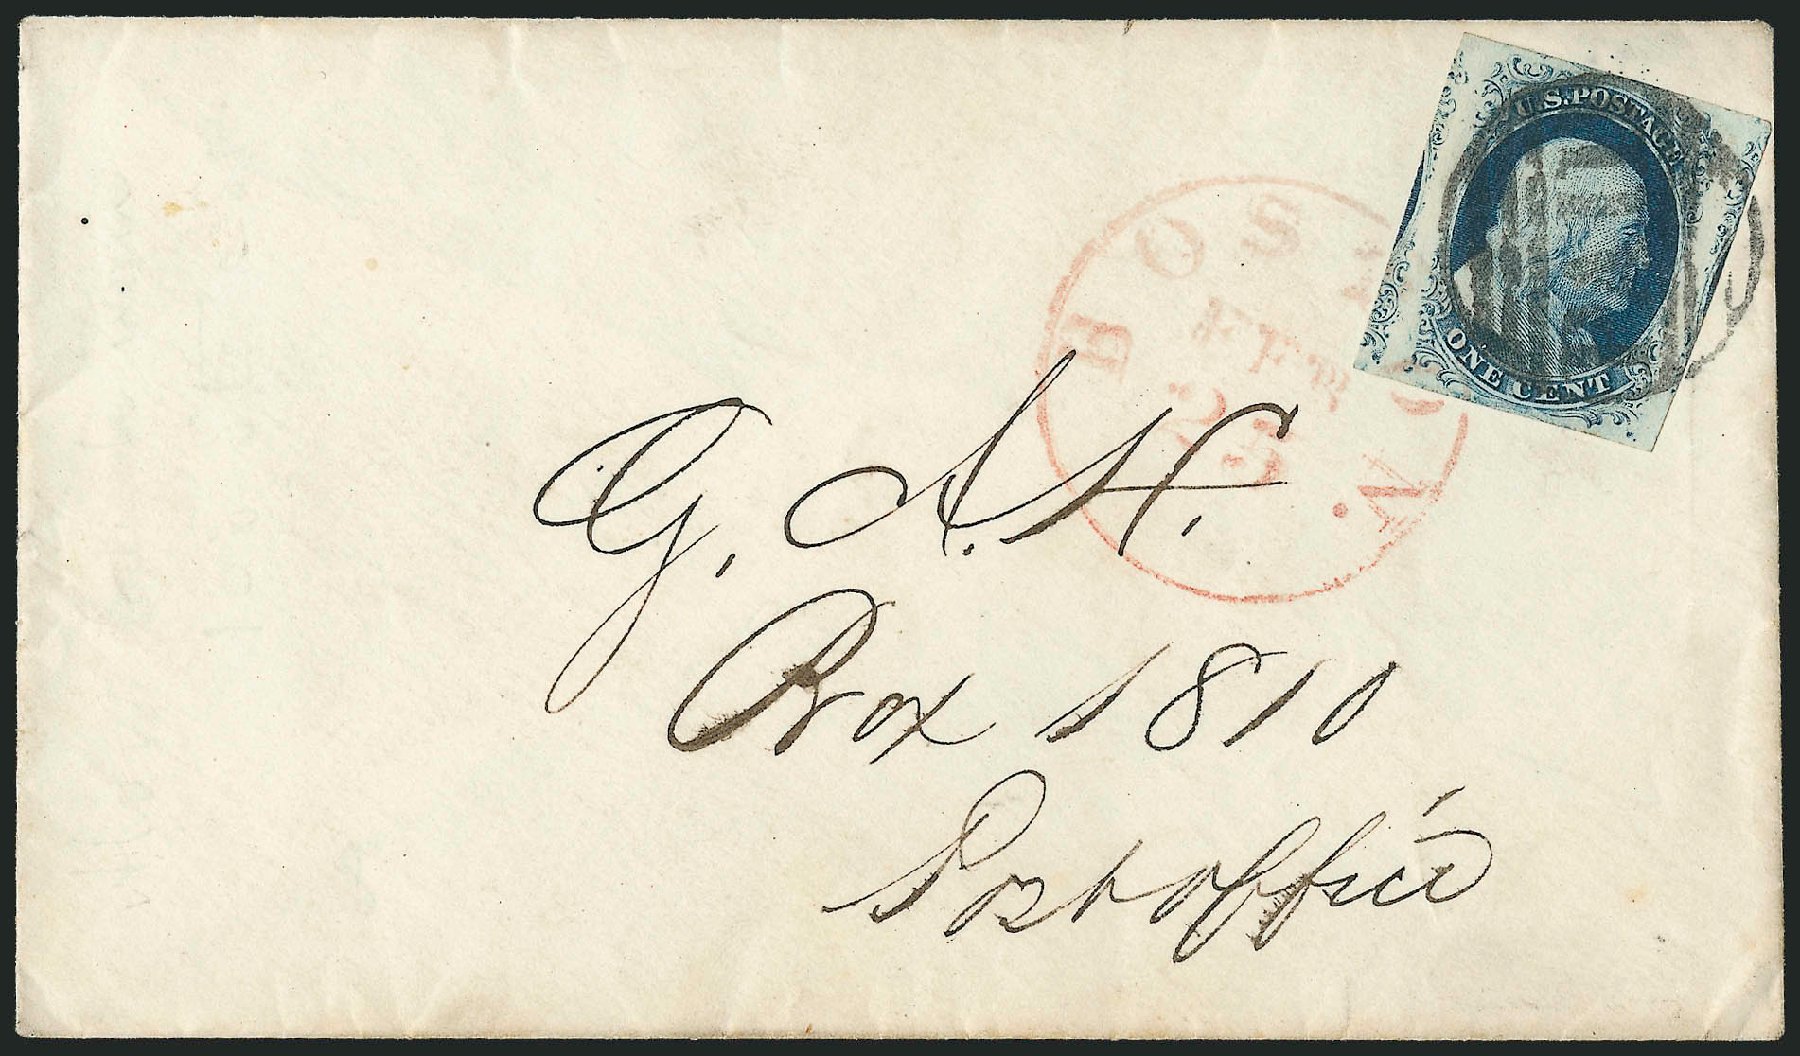 U.S. POSTAGE
ONE CENT
BOSTON.
FEB
G. A. H.
Box 1810
Post office